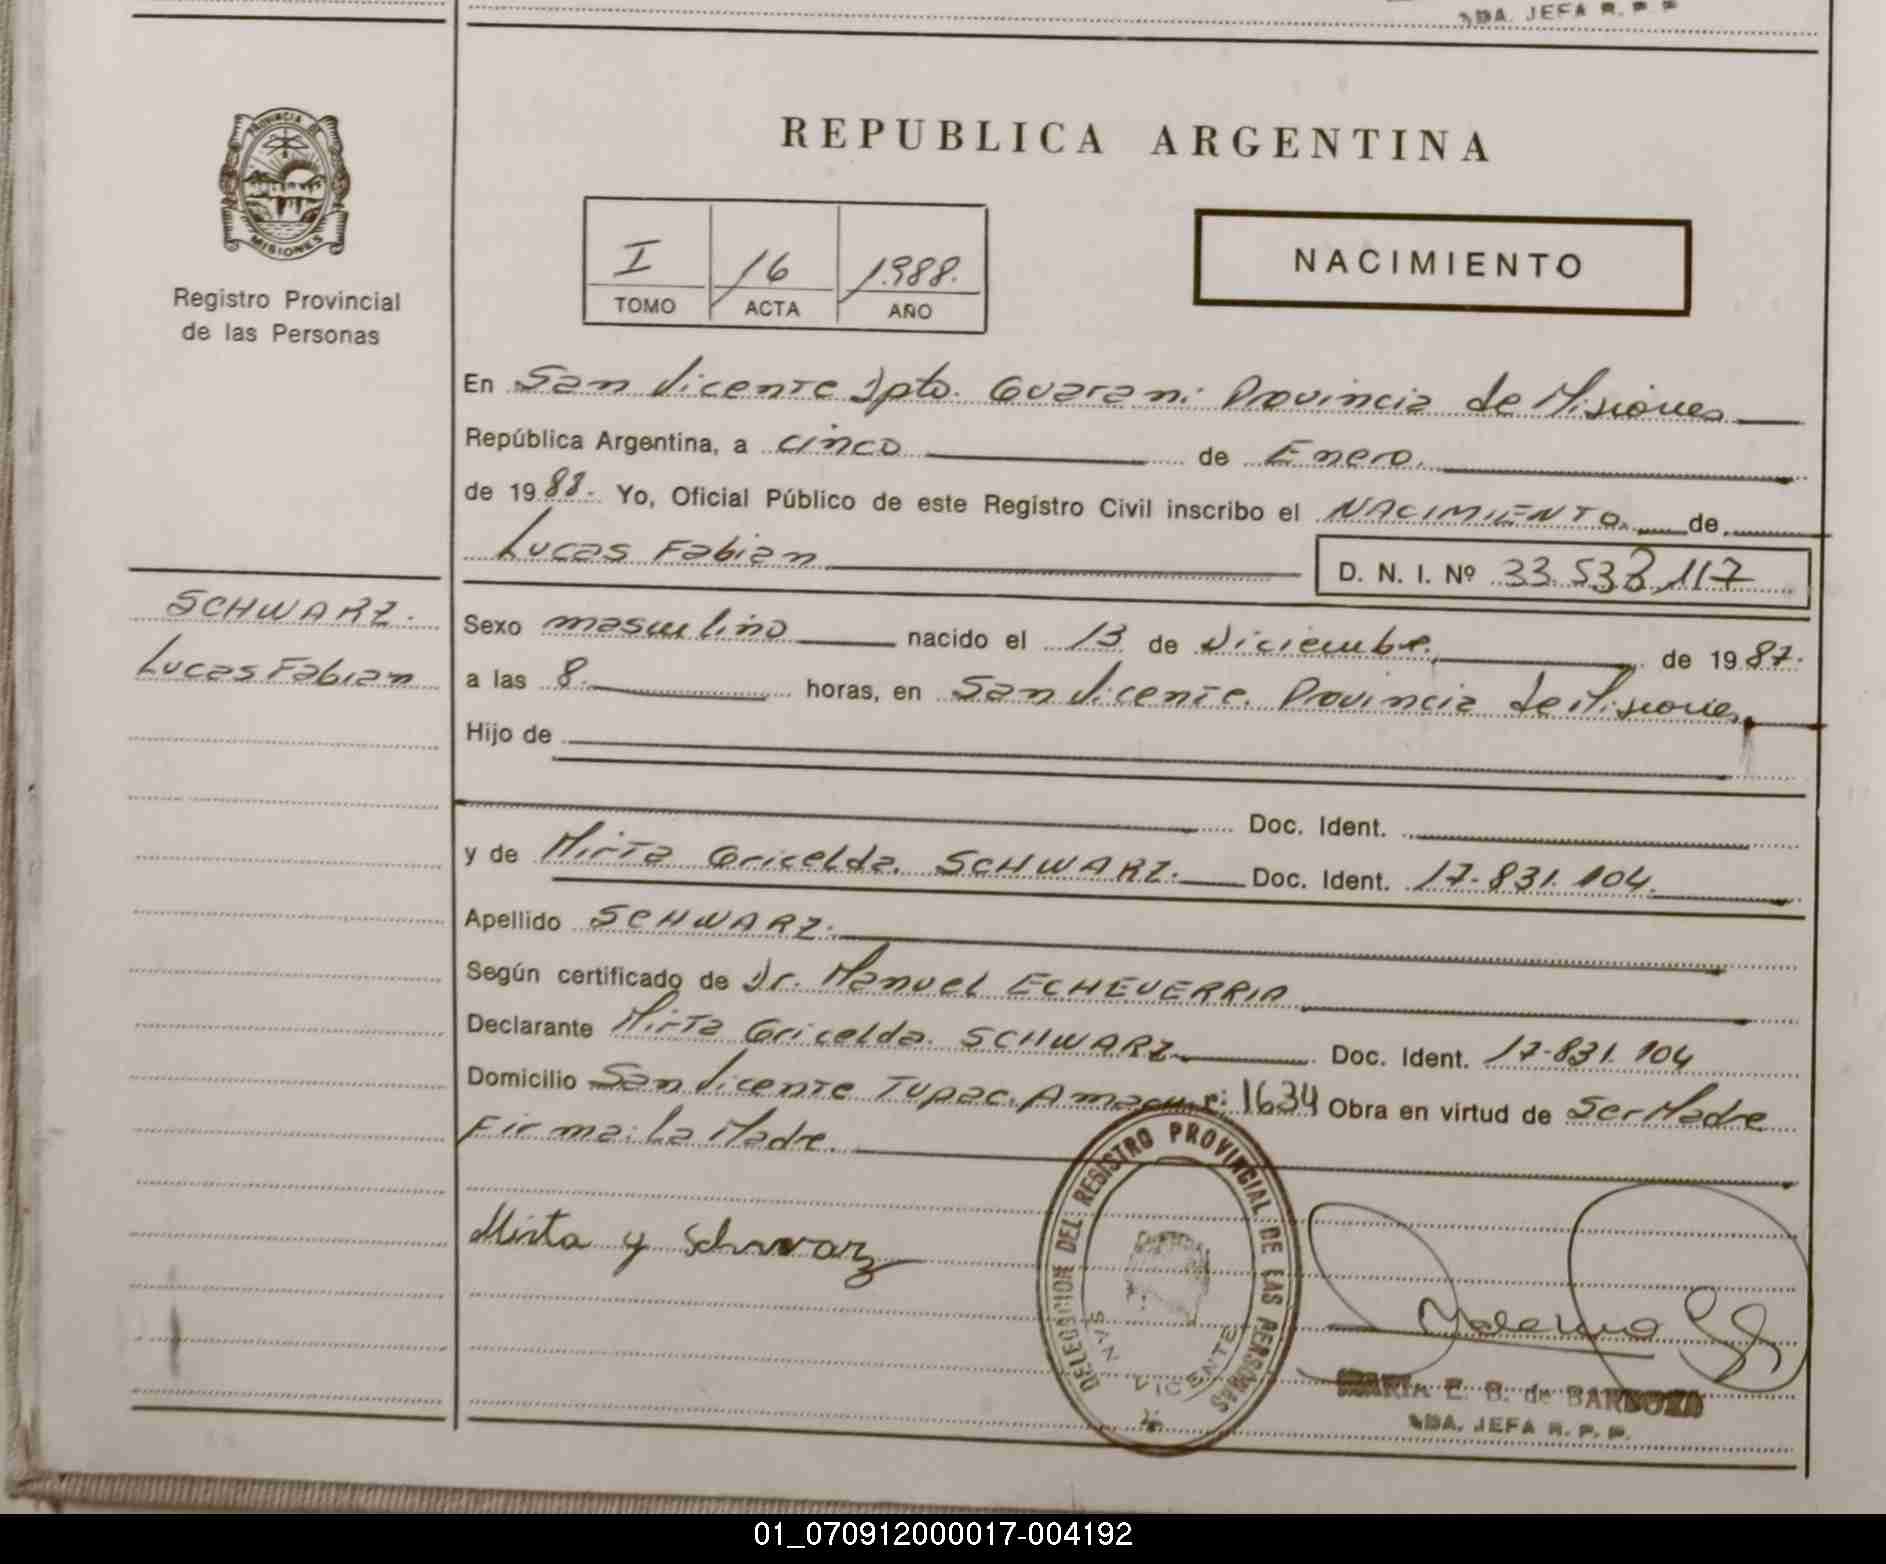 3DA. JEFA R. P. P.
PROVINCIA DE
MISIONES
Registro Provincial
de las Personas
REPUBLICA ARGENTINA
I 16 1988.
TOMO ACTA AÑO
NACIMIENTO
En San Vicente Dpto. Guarani Provincia de Misiones
República Argentina, a cinco de Enero.
de 1988. Yo, Oficial Público de este Registro Civil inscribo el NACIMIENTO de
Lucas Fabian D. N. I. Nº 33.538,117
SCHWARZ.
Lucas Fabian
Sexo masculino nacido el 13 de Diciembre. de 1987.
a las 8. horas, en San Vicente. Provincia de Misiones
Hijo de
Doc. Ident.
y de Mirta Gricelda. SCHWARZ. Doc. Ident. 17-831.104.
Apellido SCHWARZ.
Según certificado de Dr. Manuel ECHEVERRIA
Declarante Mirta Gricelda. SCHWARZ Doc. Ident. 17-831.104
Domicilio San Vicente Tupac. Amaru c: 1634 Obra en virtud de Ser Madre
Firma: La Madre.
Mirta y Schwarz
DELEGACION DEL REGISTRO PROVINCIAL DE LAS PERSONAS
SAN VICENTE
MARIA E. B. de BARBOZA
3DA. JEFA R. P. P.
01_070912000017-004192